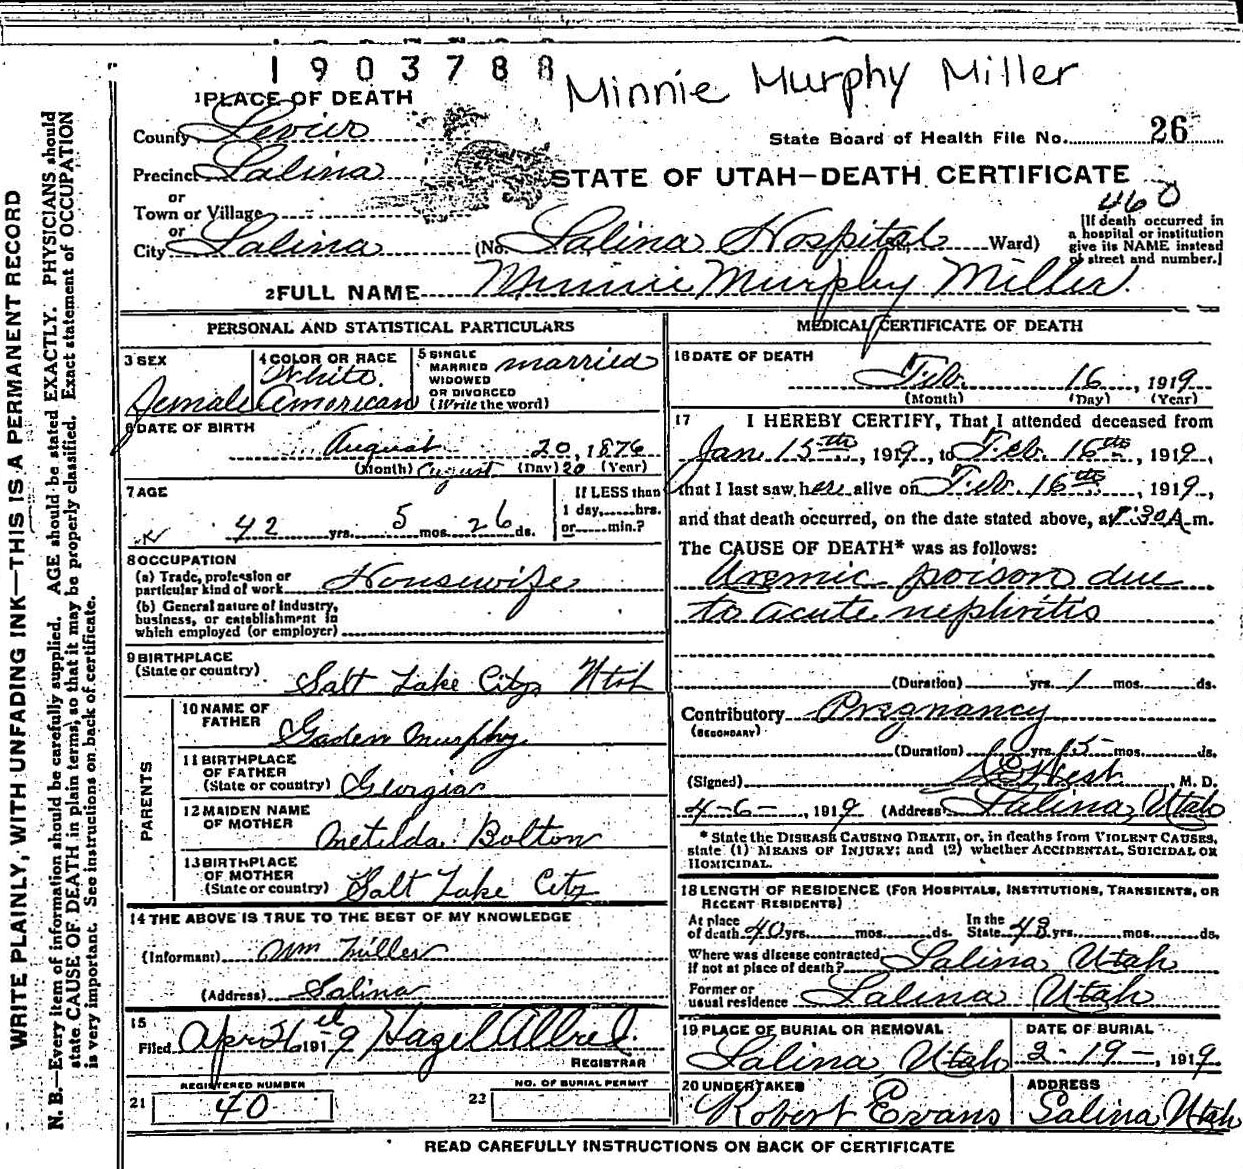 1903788
Minnie Murphy Miller
1 PLACE OF DEATH
County Sevier
State Board of Health File No. 26
Precinct Salina
STATE OF UTAH—DEATH CERTIFICATE
or
Town or Village
460
or
City Salina (No. Salina Hospital Ward)
[If death occurred in
a hospital or institution
give its NAME instead
of street and number.]
2 FULL NAME Minnie Murphy Miller
PERSONAL AND STATISTICAL PARTICULARS
3 SEX
Female
4 COLOR OR RACE
White
American
5 SINGLE
MARRIED
WIDOWED
OR DIVORCED
(Write the word)
married
6 DATE OF BIRTH
August 20, 1876
(Month) August (Day) 20 (Year)
7 AGE
42 yrs. 5 mos. 26 ds.
If LESS than
1 day, hrs.
or min.?
8 OCCUPATION
(a) Trade, profession or
particular kind of work Housewife
(b) General nature of industry,
business, or establishment in
which employed (or employer)
9 BIRTHPLACE
(State or country)
Salt Lake City Utah
PARENTS
10 NAME OF
FATHER
Murphy
11 BIRTHPLACE
OF FATHER
(State or country) Georgia
12 MAIDEN NAME
OF MOTHER
Metilda Bolton
13 BIRTHPLACE
OF MOTHER
(State or country) Salt Lake City
14 THE ABOVE IS TRUE TO THE BEST OF MY KNOWLEDGE
(Informant) Wm Miller
(Address) Salina
15
Filed Apr 26 1919 Hazel Allred
REGISTRAR
REGISTERED NUMBER
21 40
NO. OF BURIAL PERMIT
22
MEDICAL CERTIFICATE OF DEATH
16 DATE OF DEATH
Feb. 16, 1919
(Month) (Day) (Year)
17 I HEREBY CERTIFY, That I attended deceased from
Jan. 15th, 1919, to Feb. 16th, 1919,
that I last saw her alive on Feb. 16th, 1919,
and that death occurred, on the date stated above, at 1:30 A.m.
The CAUSE OF DEATH* was as follows:
Uremic poison due
to acute nephritis
(Duration) yrs. 1 mos. ds.
Contributory Pregnancy
(SECONDARY)
(Duration) yrs. 5 mos. ds.
(Signed) West, M. D.
4-6-, 1919 (Address) Salina, Utah
* State the DISEASE CAUSING DEATH, or, in deaths from VIOLENT CAUSES,
state (1) MEANS OF INJURY; and (2) whether ACCIDENTAL, SUICIDAL OR
HOMICIDAL.
18 LENGTH OF RESIDENCE (FOR HOSPITALS, INSTITUTIONS, TRANSIENTS, OR
RECENT RESIDENTS)
At place
of death 40 yrs. mos. ds.
In the
State 43 yrs. mos. ds.
Where was disease contracted
if not at place of death? Salina Utah
Former or
usual residence Salina Utah
19 PLACE OF BURIAL OR REMOVAL
Salina, Utah
DATE OF BURIAL
2-19-, 1919
20 UNDERTAKER
Robert Evans
ADDRESS
Salina Utah
READ CAREFULLY INSTRUCTIONS ON BACK OF CERTIFICATE
WRITE PLAINLY, WITH UNFADING INK—THIS IS A PERMANENT RECORD
N. B.—Every item of information should be carefully supplied. AGE should be stated EXACTLY. PHYSICIANS should
state CAUSE OF DEATH in plain terms, so that it may be properly classified. Exact statement of OCCUPATION
is very important. See instructions on back of certificate.